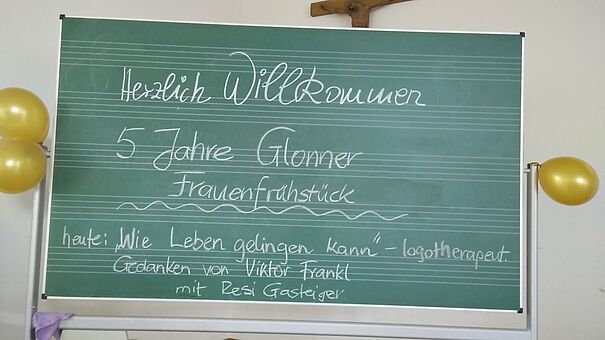 Herzlich Willkommen
5 Jahre Glonner
Frauenfrühstück
heute: „Wie Leben gelingen kann" - logotherapeut.
Gedanken von Viktor Frankl
mit Resi Gasteiger